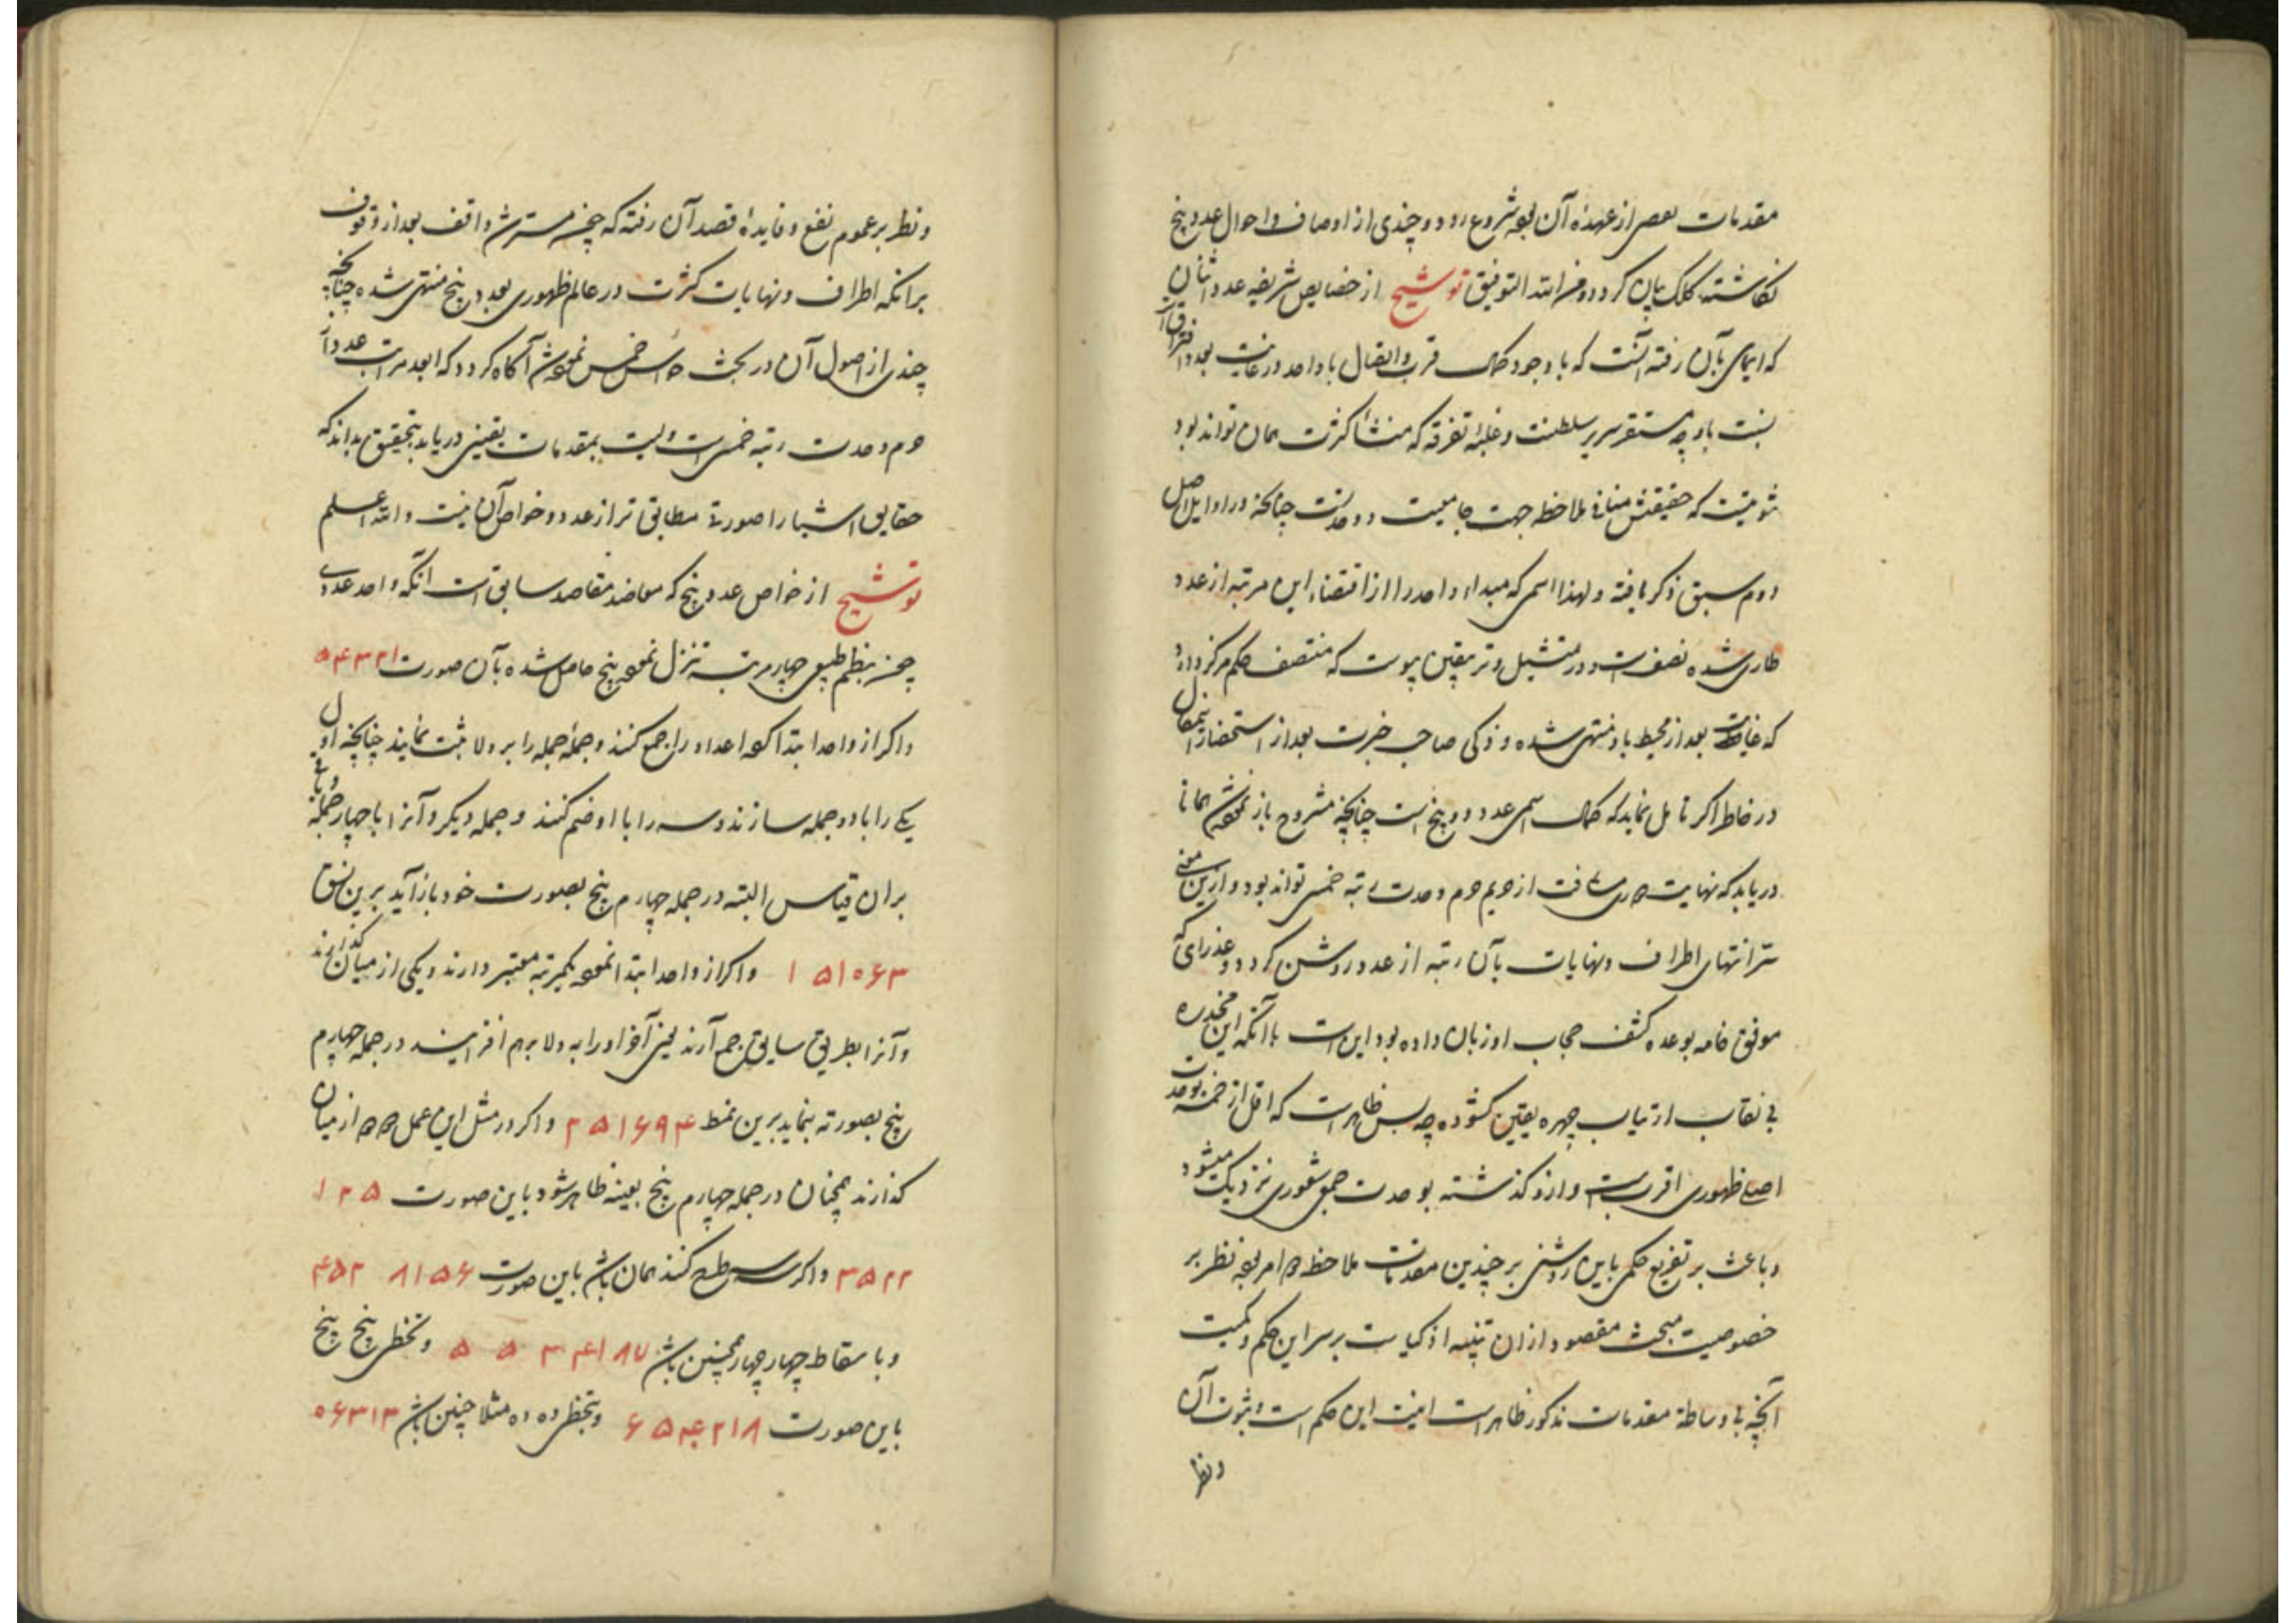 مقدمات بعضی از عهدهٔ آن بیرون شروع رود و چندی از اوصاف و احوال عدد پنج
نگاشتهٔ کلک بیان گردد و من الله التوفیق توشیح از خصایص شریفه عدد اثنان
که ایمای بآن رفته آنست که با وجود کمال قرب و اتصال با واحد در غایت بعد و افتراق از
نسبت با و چه مستقر سریر سلطنت و غلبهٔ تفرقه که منشأ کثرت همان تواند بود
ثنویتست که حقیقتش منافی ملاحظه جهت جامعیت و وحدتست چنانچه در اوایل اصل
دوم سبق ذکر یافته و لهذا اسمی که مبدا و واحد را از اقتضاء این مرتبه از عدد
طاری شده نصف است و در تمثیل و تربیقین پیوست که منتصف حکم مرکز دارد
که غایت بعد از محیط باو منتهی شده و ذکی صاحب خبرت بعد از استحضار این مقال
در خاطر اگر تامل نماید که کمال اسمی عدد دو پنج است چنانچه مشروح باز نموده شد همانا
دریابد که نهایت مسافت از حریم حرم وحدت رتبه خمس تواند بود و ازین معنی
سر انتهای اطراف و نهایات بآن رتبه از عدد روشن گردد و عذرای که
موفق خامه بوعده کشف حجاب او زبان داده بود این است با آنکه این مخدره
بی نقاب ارتیاب چهره یقین گشوده چه بس ظاهرست که اقل از خمسه بوحدت
اصلی ظهوری اقربست و ازو گذشته بوحدت جمعی شعوری نزدیک میشود
و باعث بر تفریع حکمی باین روشنی بر چندین مقدمات ملاحظه دو امر بوده نظر بر
خصوصیت مبحث مقصود از ان تنبیه اذکیاست بر سر این حکم و لمیت
آنچه بی وساطهٔ مقدمات مذکور ظاهر است انیت این حکم است و ثبوت آن
و نظر
و نظر بر عموم نفع و فایدهٔ قصد آن رفته که چون مسترشد واقف بعد از وقوف
برانکه اطراف و نهایات کثرت در عالم ظهوری بعدد پنج منتهی شده چنانچه
چندی از اصول آن در بحث حواس خمس نموده شد آگاه گردد که ابعد مراتب عدد از
حرم وحدت رتبه خمس است و لمیت بمقدمات یقینی دریابد بتحقیق بداند که
حقایق اشیا را صورتی مطابق تر از عدد و خواص آن نیست و الله اعلم
توشیح از خواص عدد پنج که معاضد مقاصد سابق است آنکه واحد عددی
چون بنظم طبیعی چهار مرتبه تنزل نموده پنج حاصل شده بآن صورت ۵۴۳۲۱
و اگر از واحد ابتدا کرده اعداد را جمع کنند و جملهٔ جمله را بر ولا ثبت نمایند چنانچه اول
یکی را با دو جمله سازند و سه را با او ضم کنند و جمله دیگر و آنرا با چهار جمله و باقی
بران قیاس البته در جمله چهارم پنج بصورت خود باز آید برین نسق
۱ ۵۱۰۶۳ و اگر از واحد ابتدا نموده یکمرتبه معتبر دارند و یکی از میان گذارند
و آنرا بطریق سابق جمع آرند یعنی آحاد را به ولا برهم افزایند در جمله چهارم
پنج بصورته نماید برین نمط ۲۵۱۶۹۴ و اگر در مثل این عمل دو دو از میان
گذارند همچنان در جمله چهارم پنج بعینه ظاهر شود باین صورت ۱۲۵
۳۵۲۲ و اگر سه سه طرح کنند همان باشد باین صورت ۸۱۵۶ ۴۵۲
و باسقاط چهار چهار همچنین باشد ۳۴۱۸۷ ۵ ۵ و بتخطی پنج پنج
باین صورت ۶۵۴۲۱۸ و بتخطی ده ده مثلا چنین باشد ۰۶۳۱۳